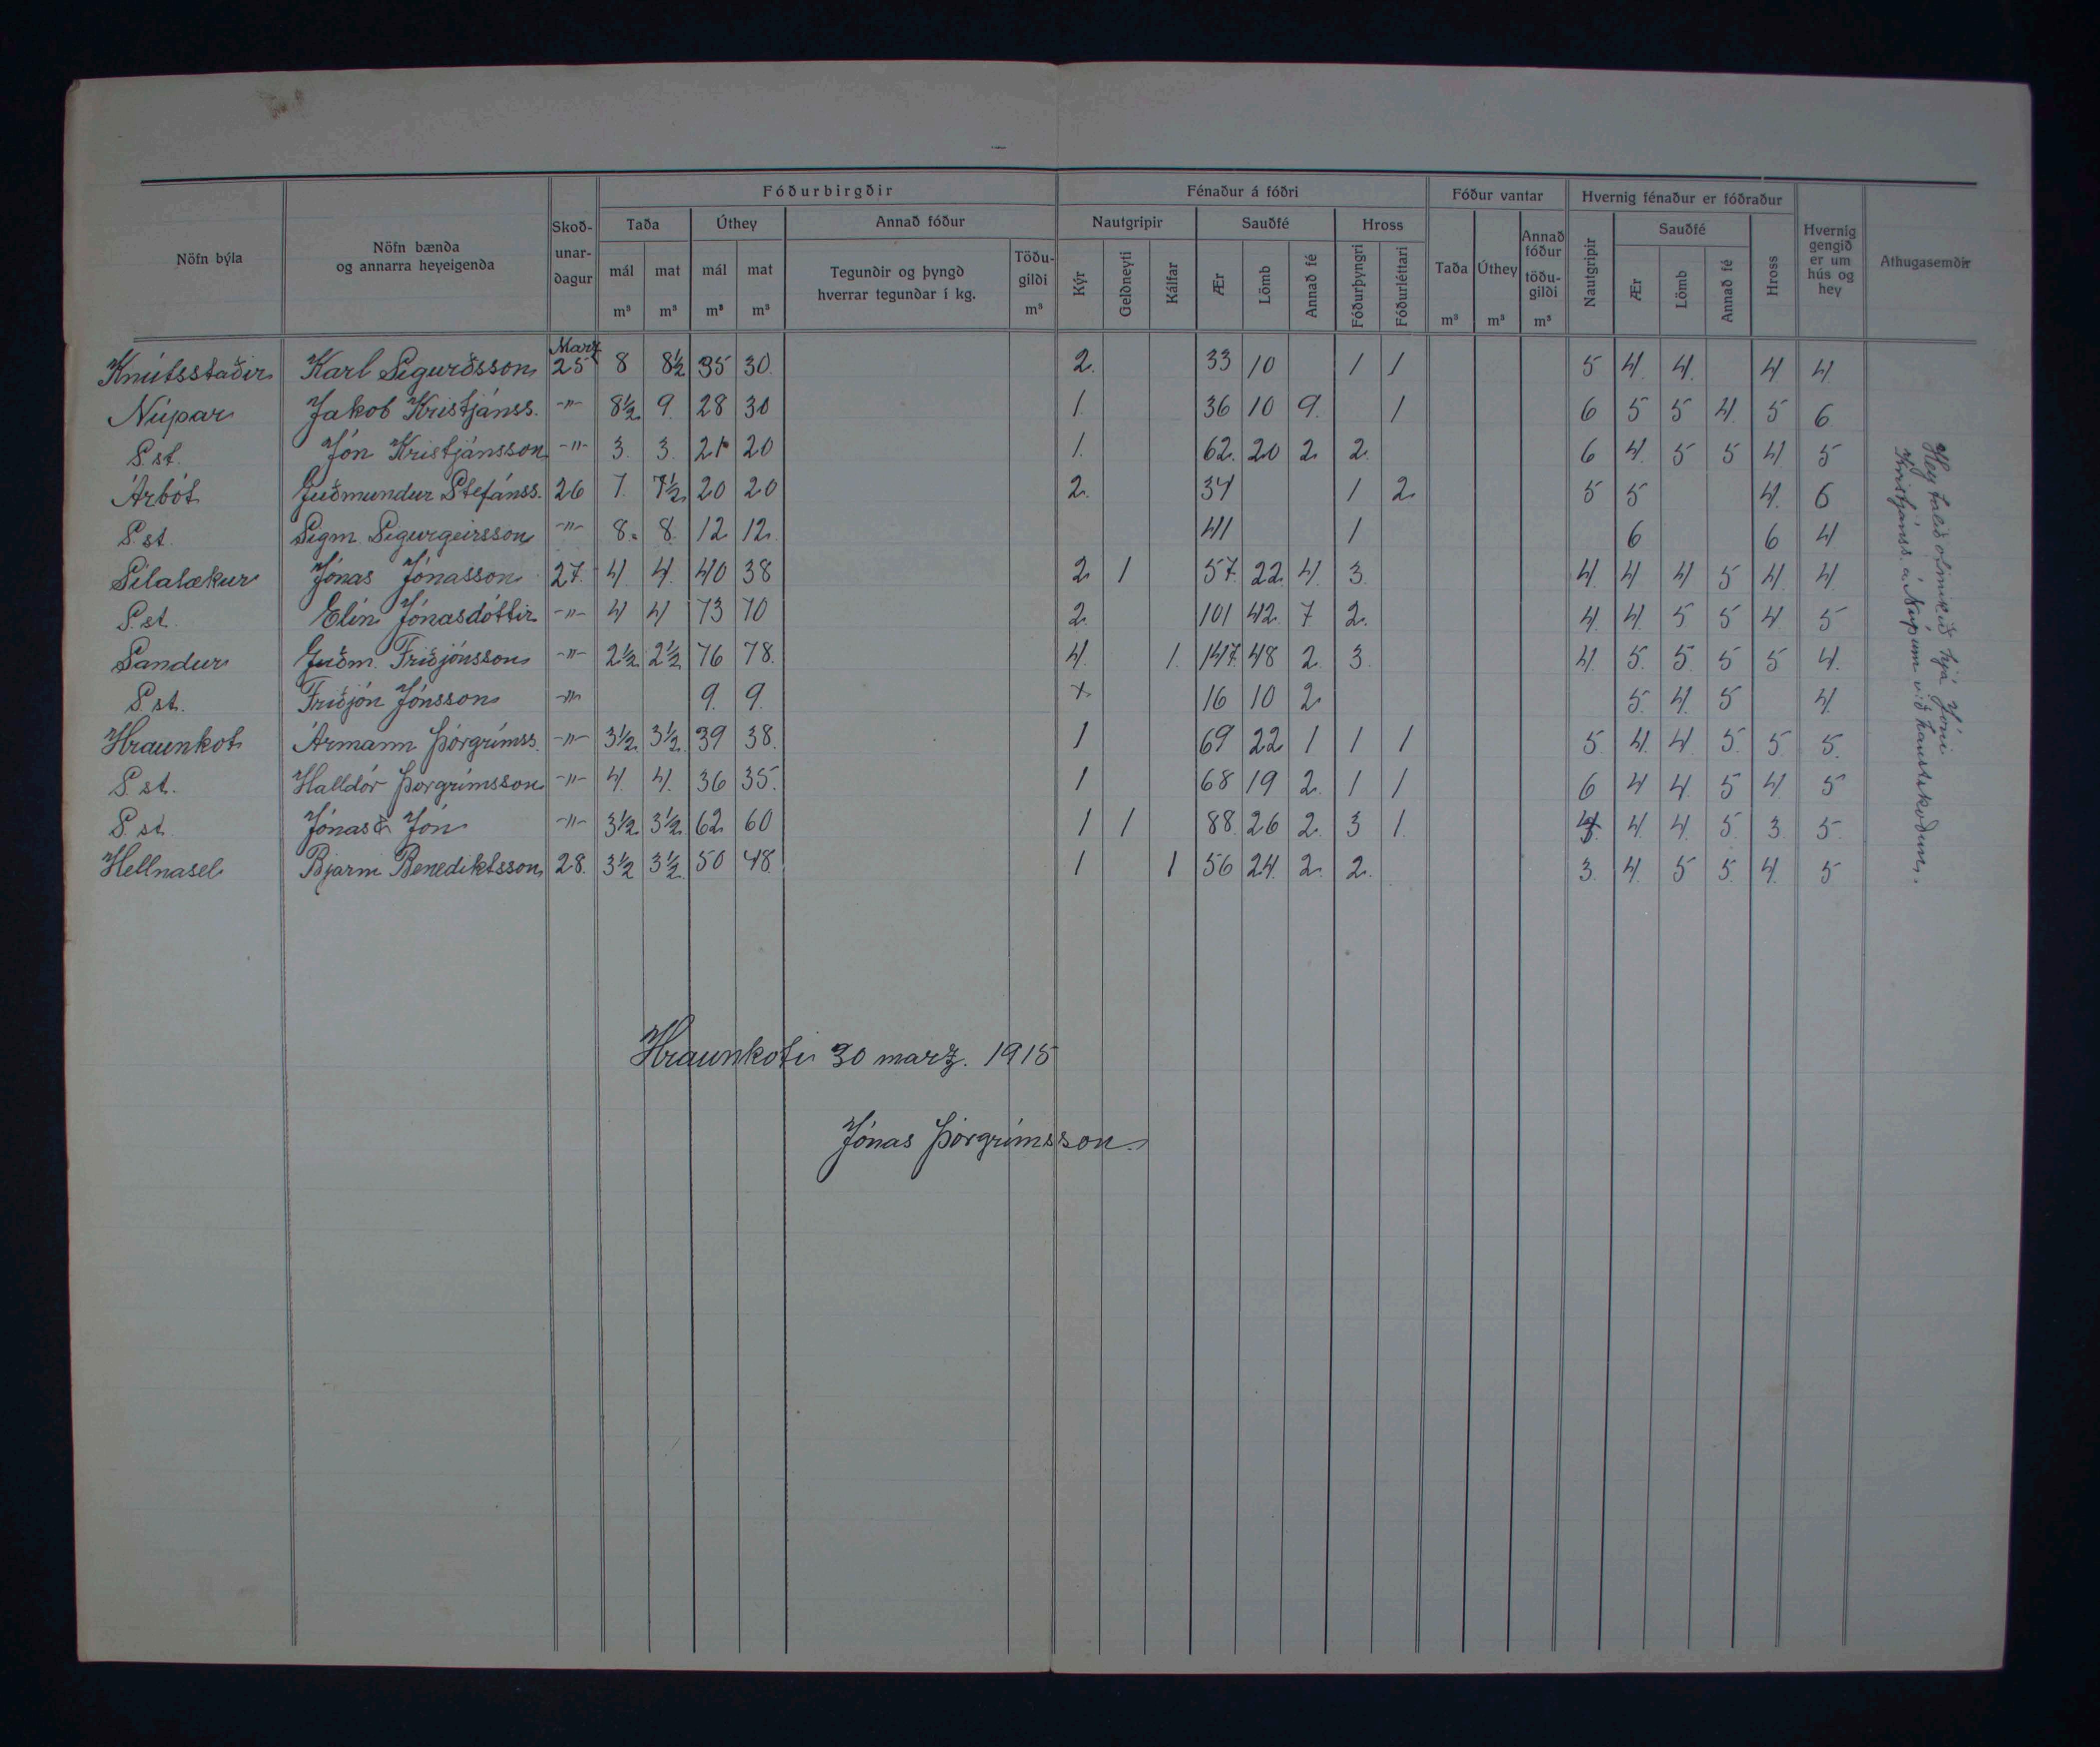 Nöfn býla | Nöfn bænda og annarra heyeigenda | Skoðunardagur | Fóðurbirgðir | Fénaður á fóðri | Fóður vantar | Hvernig fénaður er fóðraður | Hvernig gengið er um hús og hey | Athugasemdir
Taða | Úthey | Annað fóður | Nautgripir | Sauðfé | Hross | Taða | Úthey | Annað fóður töðugildi | Nautgripir | Sauðfé | Hross
mál | mat | mál | mat | Tegundir og þyngd hverrar tegundar í kg. | Töðugildi | Kýr | Geldneyti | Kálfar | Ær | Lömb | Annað fé | Fóðurþyngri | Fóðurléttari | Ær | Lömb | Annað fé
m³ | m³ | m³ | m³ | m³ | m³ | m³ | m³
Marz
Knútsstaðir | Karl Sigurðsson | 25 | 8 | 8½ | 35 | 30. | 2. | 33 | 10 | 1 | 1 | 5 | 4. | 4. | 4 | 4
Núpar | Jakob Kristjánss. | -"- | 8½ | 9. | 28 | 30 | 1. | 36 | 10 | 9. | 1 | 6 | 5 | 5 | 4. | 5 | 6
S. st. | Jón Kristjánsson | -"- | 3. | 3. | 21 | 20 | 1. | 62. | 20 | 2 | 2. | 6 | 4. | 5 | 5 | 4 | 5
Árbót | Guðmundur Stefánss. | 26 | 7. | 7½ | 20 | 20 | 2. | 34 | 1 | 2. | 5 | 5 | 4. | 6
S. st. | Sigm. Sigurgeirsson | -"- | 8. | 8. | 12 | 12. | 41 | 1 | 6 | 6 | 4
Sílalækur | Jónas Jónasson | 27. | 4. | 4. | 40 | 38 | 2 | 1 | 57. | 22. | 4. | 3. | 4. | 4 | 4 | 5 | 4 | 4.
S. st. | Elín Jónasdóttir | -"- | 4 | 4 | 73 | 70 | 2. | 101 | 42. | 7 | 2. | 4. | 4. | 5 | 5 | 4 | 5
Sandur | Guðm. Friðjónsson | -"- | 2½ | 2½ | 76 | 78. | 4. | 1. | 147. | 48 | 2. | 3. | 4. | 5. | 5. | 5 | 5 | 4.
S. st. | Friðjón Jónsson | -"- | 9. | 9. | + | 16 | 10 | 2. | 5. | 4. | 5 | 4.
Hraunkot | Ármann Þorgrímss. | -"- | 3½ | 3½ | 39 | 38. | 1 | 69 | 22 | 1 | 1 | 1 | 5. | 4. | 4. | 5. | 5 | 5.
S. st. | Halldór Þorgrímsson | -"- | 4. | 4. | 36 | 35. | 1 | 68 | 19 | 2. | 1 | 1 | 6 | 4 | 4. | 5 | 4. | 5
S. st. | Jónas & Jón | -"- | 3½ | 3½ | 62 | 60 | 1 | 1 | 88. | 26 | 2. | 3 | 1. | 4. | 4. | 5. | 3. | 5.
Hellnasel | Bjarni Benediktsson | 28. | 3½ | 3½ | 50 | 48. | 1 | 1 | 56 | 24. | 2. | 2. | 3. | 4. | 5 | 5. | 4. | 5
Hey talið ofmikið hjá Jóni
Kristjánss. á Núpum við haustskoðun.
Hraunkoti 30 marz. 1915
Jónas Þorgrímsson